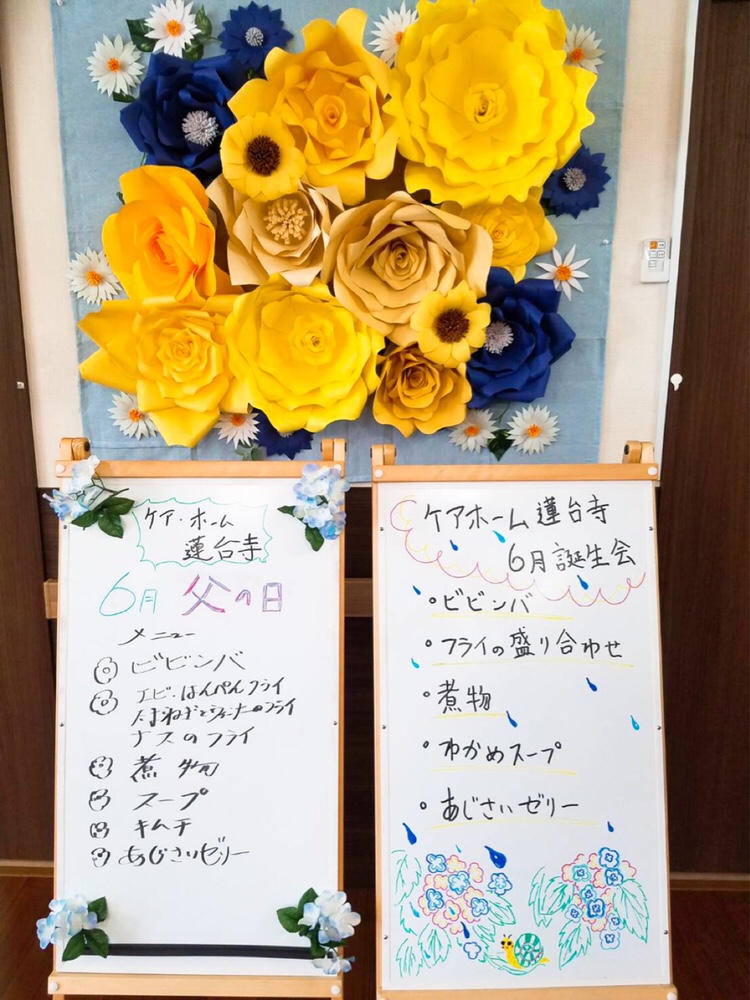 ケア・ホーム
蓮台寺
6月 父の日
メニュー
ビビンバ
エビ・はんぺんフライ
たまねぎとウィンナーのフライ
ナスのフライ
煮物
スープ
キムチ
あじさいゼリー
ケアホーム蓮台寺
6月誕生会
・ビビンバ
・フライの盛り合わせ
・煮物
・わかめスープ
・あじさいゼリー